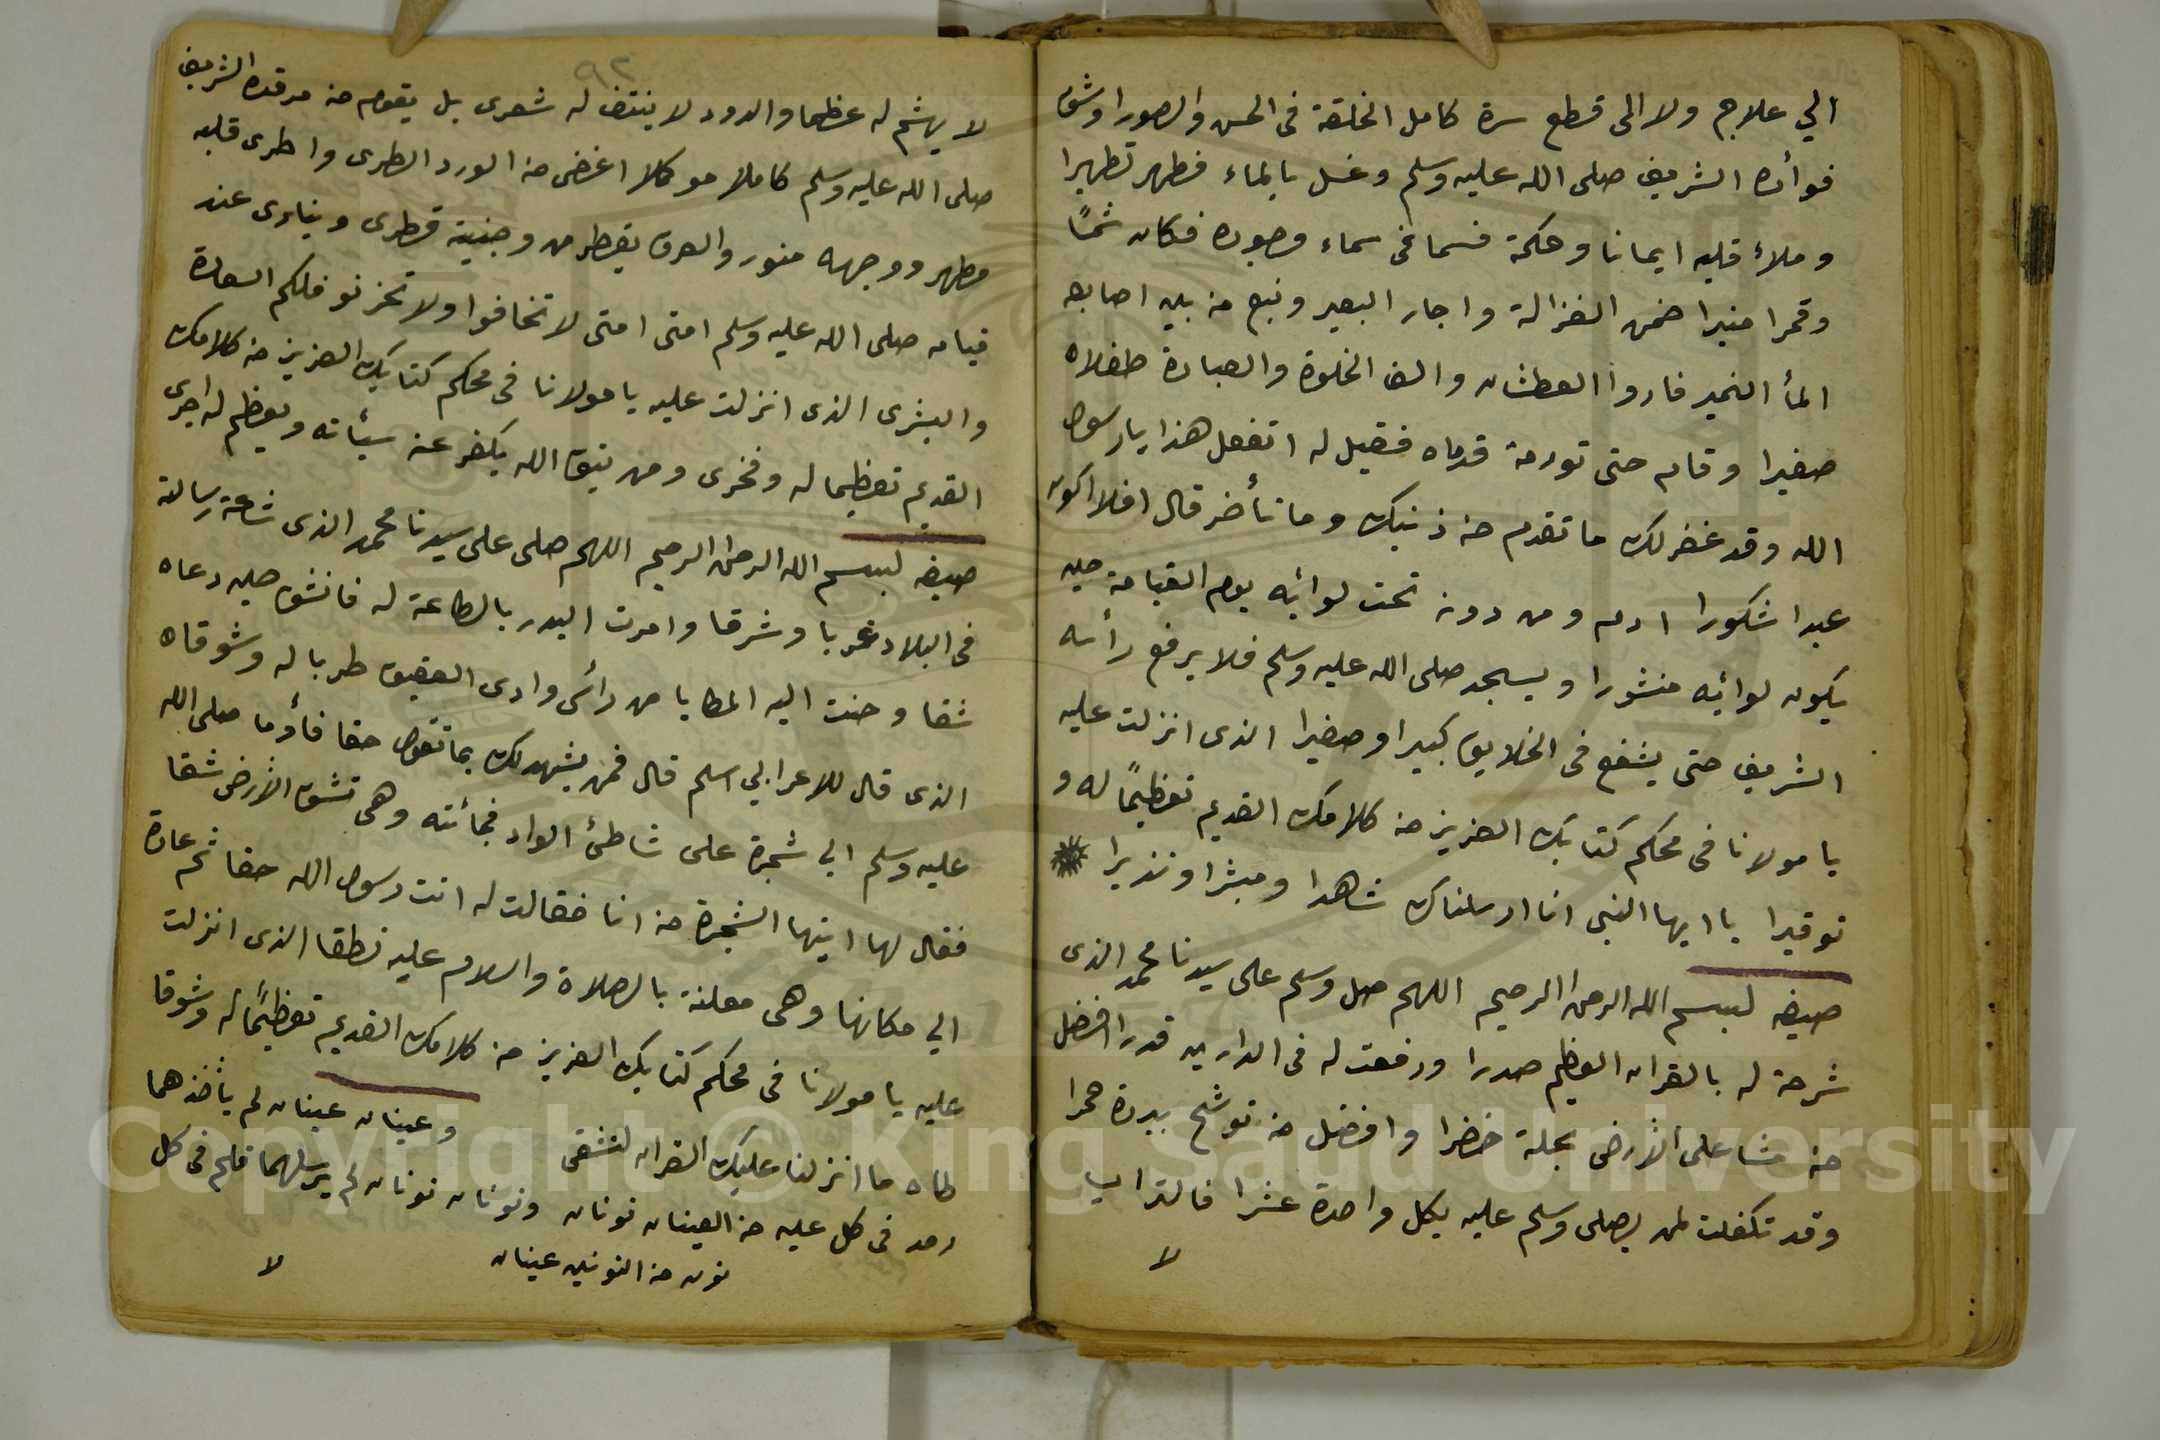 الي علاج ولا الى قطع سرة كامل الخلقة فى الحس والصورا وشق
فوأده الشريف صلى الله عليه وسلم وغسل بالماء فطهر تطهيرا
وملأ قلبه ايمانا وحكمة فسما فى سماء وجوده فكان شمسًا
وقمرا منيرا ضمن الغزالة واجار البعير ونبع من بين اصابعه
المأ النمير فاروا العطشان والف الخلوة والعبادة طفلاه
صغيرا وقام حتى تورمة قدماه فقيل له اتفعل هذا يا رسول
الله وقد غفر لك ما تقدم من ذنبك وما تأخر قال افلا اكون
عبدا شكورا ادم ومن دونه تحت لوائه يوم القيامة حين
يكون لوائه منشورا ويسجد صلى الله عليه وسلم فلا يرفع رأسه
الشريف حتى يشفع فى الخلايق كبيرا وصغيرا الذى انزلت عليه
يا مولانا فى محكم كتابك العزيز من كلامك القديم تعظيمًا له و
توقيرا يا ايها النبى انا ارسلناك شاهدا ومبشرا ونذيرا
صيغه لبسم الله الرحمن الرحيم اللهم صل وسلم على سيدنا محمد الذى
شرحة له بالقران العظيم صدرا ورفعت له فى الدارين قدرا افضل
من مشا على الأرض بحلة خضرا وافضل من توشح ببردة حمرا
وقد تكفلت لمن يصلى وسلم عليه بكل واحدة عشرا فالتراب
لا
٩٢
لا يهشم له عظما والدود لا ينتف له شعرى بل يقوم من مرقده الشريف
صلى الله عليه وسلم كاملا موكلا اغض من الورد الطرى واطرى قلبه
مطهر ووجهه منور والعرق يقطر من وجنيته قطرى وينادى عند
قيامه صلى الله عليه وسلم امتى امتى لا تخافوا ولا تحزنو فلكم السعادة
والبشرى الذى انزلت عليه يا مولانا فى محكم كتابك العزيز من كلامك
القديم تعظيما له وفخرى ومن يتق الله يكفر عنه سيأته ويعظم له اجرى
صيغه لبسم الله الرحمن الرحيم اللهم صلى على سيدنا محمد الذى شاعة رسالته
فى البلاد غربا وشرقا وامرت البدر بالطاعة له فانشق حين دعاه
شقا وحنت اليه المطايا من رأس وادى العقيق طربا له وشوقاه
الذى قال للاعرابي اسلم قال فمن يشهد لك بما تقول حقا فأوما صلى الله
عليه وسلم الي شجرة على شاطئ الواد فجائته وهى تشق الأرض شقا
فقال لها ايتها الشجرة من انا فقالت له انت رسول الله حقا ثم عادة
الي مكانها وهى معلنة بالصلاة والسلام عليه نطقا الذى انزلت
عليه يا مولانا فى محكم كتابك العزيز من كلامك القديم تعظيمًا له وشوقا
طاه ما انزلنا عليك القران لتشقى وعينان عينان لم يأخذهما
رمد فى كل عليه من العينان نونان ونونان نونان لم يرسلهما قلم فى كل
نون من النونين عينان
لا
Copyright © King Saud University